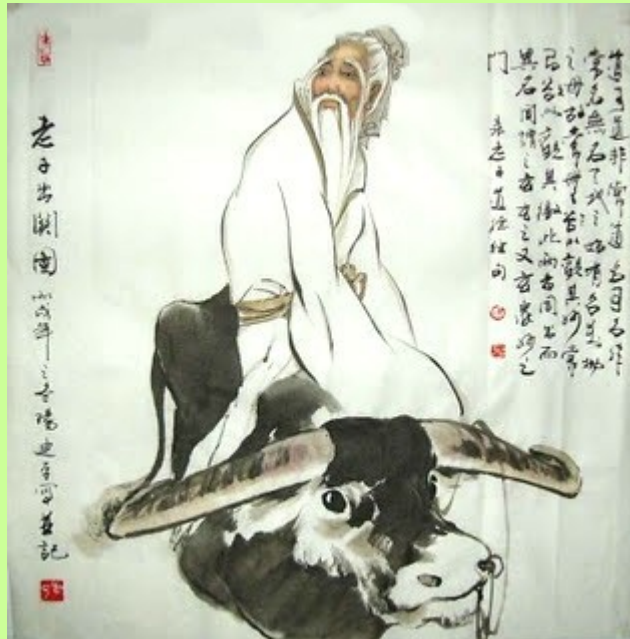 道可道非常道名可名非
常名無名天地之始有名萬物
之母故常無欲以觀其妙常
有欲以觀其徼此兩者同出而
異名同謂之玄玄之又玄衆妙之
門 录老子道德经句
老子出關圖 丙戌年之冬